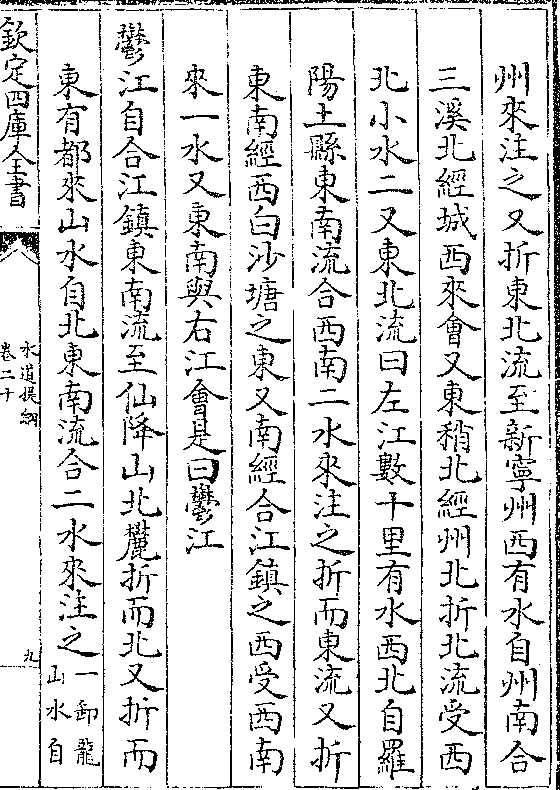 州來注之又折東北流至新寧州西有水自州南合
三溪北經城西來會又東稍北經州北折北流受西
北小水二又東北流曰左江數十里有水西北自羅
陽土縣東南流合西南二水來注之折而東流又折
東南經西白沙塘之東又南經合江鎮之西受西南
來一水又東南與右江會是曰鬱江
鬱江自合江鎮東南流至仙降山北麓折而北又折而
東有都來山水自北東南流合二水來注之一卽龍
山水自
欽定四庫全書
水道提綱
卷二十
九